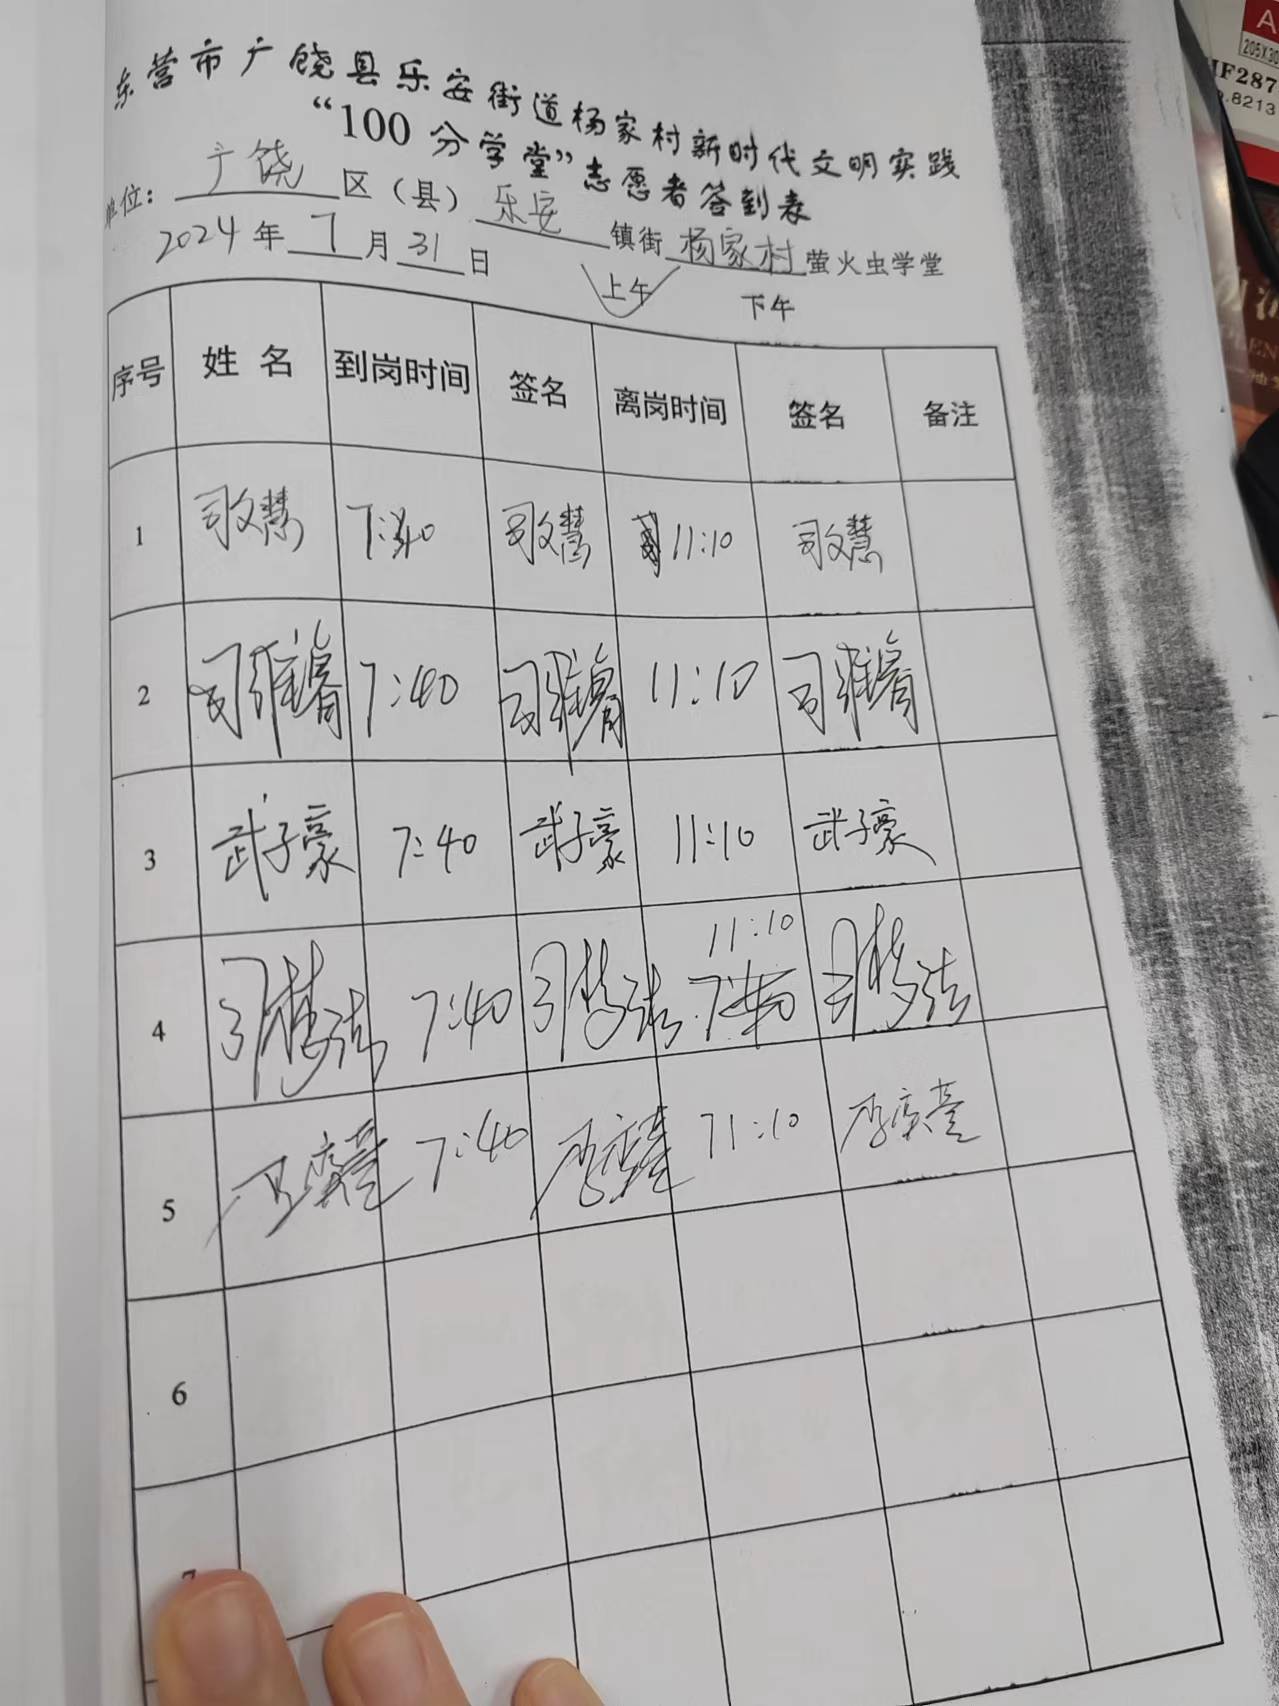 东营市广饶县乐安街道杨家村新时代文明实践
“100分学堂”志愿者签到表
单位：广饶区（县）乐安镇街杨家村萤火虫学堂
2024年7月31日
上午 下午
序号 姓名 到岗时间 签名 离岗时间 签名 备注
1 司文慧 7:40 司文慧 11:10 司文慧
2 司维睿 7:40 司维睿 11:10 司维睿
3 武子豪 7:40 武子豪 11:10 武子豪
11:10
4 7:40 7:40
5 7:40 11:10
6
7
A
205X30
HF287
8213